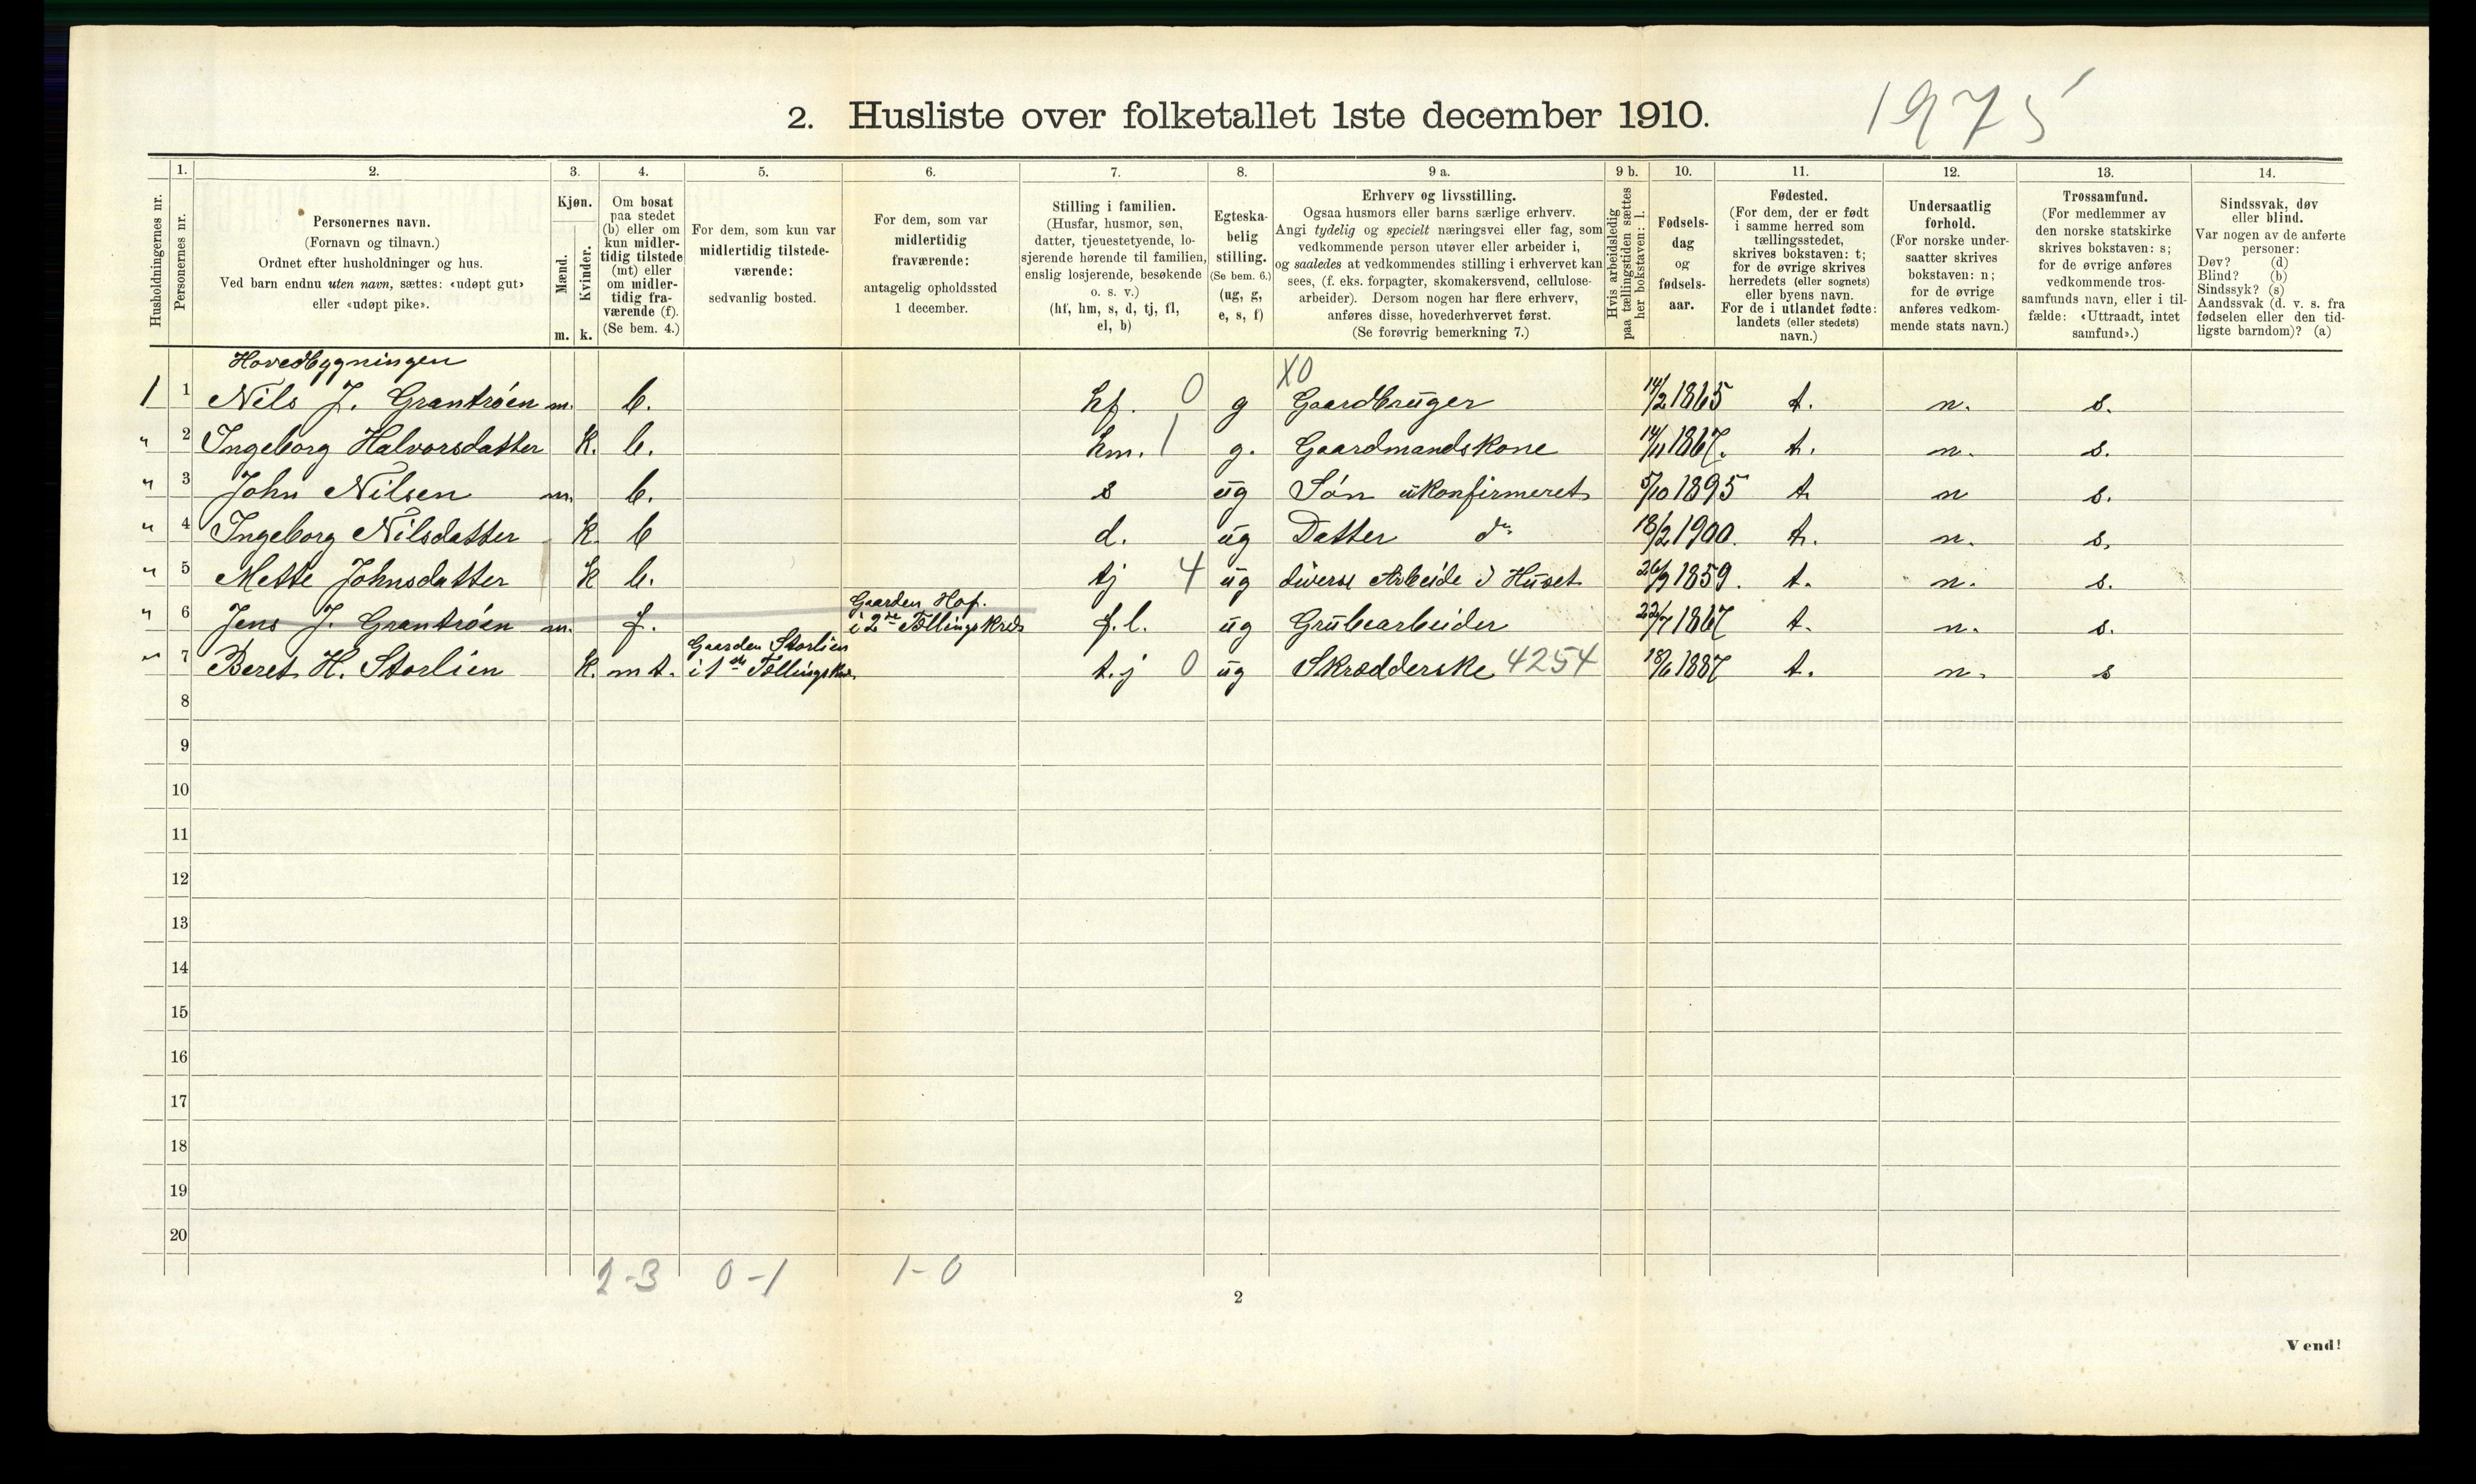 1975
2. Husliste over folketallet 1ste december 1910.
Husholdningernes nr.
1.
Personernes nr.
2.
Personernes navn.
(Fornavn og tilnavn.)
Ordnet efter husholdninger og hus.
Ved barn endnu uten navn, sættes: «udøpt gut»
eller «udøpt pike».
3.
Kjøn.
Mænd.
Kvinder.
m. k.
4.
Om bosat
paa stedet
(b) eller om
kun midler-
tidig tilstede
(mt) eller
om midler-
tidig fra-
værende (f).
(Se bem. 4.)
5.
For dem, som kun var
midlertidig tilstede-
værende:
sedvanlig bosted.
6.
For dem, som var
midlertidig
fraværende:
antagelig opholdssted
1 december.
7.
Stilling i familien.
(Husfar, husmor, søn,
datter, tjenestetyende, lo-
sjerende hørende til familien,
enslig losjerende, besøkende
o. s. v.)
(hf, hm, s, d, tj, fl,
el, b)
8.
Egteska-
belig
stilling.
(Se bem. 6.)
(ug, g,
e, s, f)
9 a.
Erhverv og livsstilling.
Ogsaa husmors eller barns særlige erhverv.
Angi tydelig og specielt næringsvei eller fag, som
vedkommende person utøver eller arbeider i,
og saaledes at vedkommendes stilling i erhvervet kan
sees, (f. eks. forpagter, skomakersvend, cellulose-
arbeider). Dersom nogen har flere erhverv,
anføres disse, hovederhvervet først.
(Se forøvrig bemerkning 7.)
9 b.
Hvis arbeidsledig
paa tællingstiden sættes
her bokstaven: l.
10.
Fødsels-
dag
og
fødsels-
aar.
11.
Fødested.
(For dem, der er født
i samme herred som
tællingsstedet,
skrives bokstaven: t;
for de øvrige skrives
herredets (eller sognets)
eller byens navn.
For de i utlandet fødte:
landets (eller stedets)
navn.)
12.
Undersaatlig
forhold.
(For norske under-
saatter skrives
bokstaven: n;
for de øvrige
anføres vedkom-
mende stats navn.)
13.
Trossamfund.
(For medlemmer av
den norske statskirke
skrives bokstaven: s;
for de øvrige anføres
vedkommende tros-
samfunds navn, eller i til-
fælde: «Uttraadt, intet
samfund».)
14.
Sindssvak, døv
eller blind.
Var nogen av de anførte
personer:
Døv? (d)
Blind? (b)
Sindssyk? (s)
Aandssvak (d. v. s. fra
fødselen eller den tid-
ligste barndom)? (a)
Hovedbygningen
1 1 Nils J. Grantrøen m. b. hf. 0 g X0 Gaardbruger 14/2 1865 t. n. s.
" 2 Ingeborg Halvorsdatter k. b. hm. 1 g. Gaardmandskone 14/11 1867. t. n. s.
" 3 John Nilsen m. b. s ug Søn ukonfirmeret 5/10 1895 t. n s.
" 4 Ingeborg Nilsdatter k. b d. ug Datter do 18/2 1900. t. n. s.
" 5 Mette Johnsdatter k b. tj 4 ug diverse Arbeide i Huset 26/9 1859. t. n. s.
" 6 Jens J. Grantrøen m. f. Gaarden Hof. i 2de Tællingskreds f.l. ug Grubearbeider 22/7 1867 t. n. s.
" 7 Beret H. Storlien k. mt. Gaarden Storlien i 1ste Tællingskr. t.j 0 ug Skrædderske 4254 18/6 1887 t. n. s
8
9
10
11
12
13
14
15
16
17
18
19
20
2-3 0-1 1-0
2
Vend!